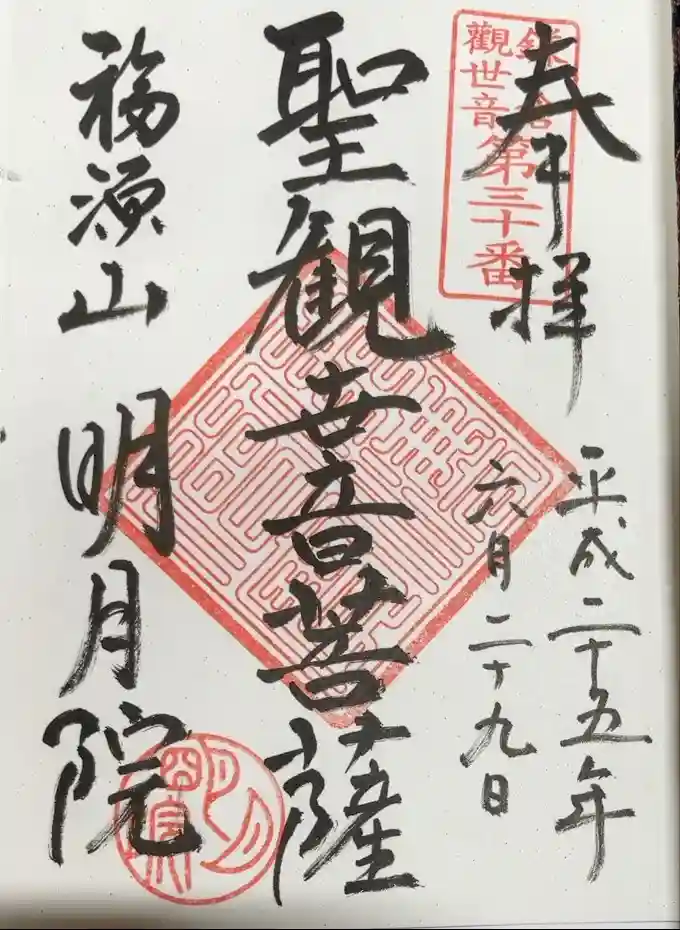 奉拝
鎌倉
觀世音
第三十番
平成二十五年
六月二十九日
聖観世音菩薩
福源山
明月院